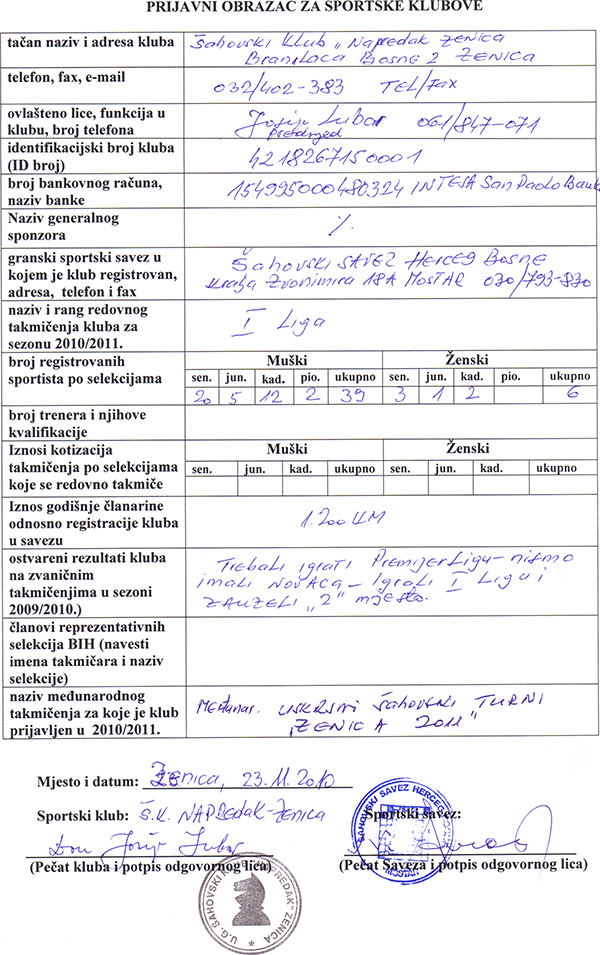 PRIJAVNI OBRAZAC ZA SPORTSKE KLUBOVE
tačan naziv i adresa kluba
Šahovski Klub „Napredak Zenica
Branilaca Bosne 2 Zenica
telefon, fax, e-mail
032/402-383 TEL/Fax
ovlašteno lice, funkcija u
klubu, broj telefona
Josip Lubar 061/847-071
identifikacijski broj kluba
(ID broj)
4218267150001
broj bankovnog računa,
naziv banke
154995000480324 INTESA San Paolo Bank
Naziv generalnog
sponzora
%
granski sportski savez u
kojem je klub registrovan,
adresa, telefon i fax
Šahovski SAVEZ Herceg Bosne
Kralja Zvonimira 18A MOSTAR 030/793-830
naziv i rang redovnog
takmičenja kluba za
sezonu 2010/2011.
I Liga
broj registrovanih
sportista po selekcijama
Muški Ženski
sen. jun. kad. pio. ukupno sen. jun. kad. pio. ukupno
20 5 12 2 39 3 1 2 6
broj trenera i njihove
kvalifikacije
Iznosi kotizacija
takmičenja po selekcijama
koje se redovno takmiče
Muški Ženski
sen. jun. kad. ukupno sen. jun. kad. ukupno
Iznos godišnje članarine
odnosno registracije kluba
u savezu
1.200 KM
ostvareni rezultati kluba
na zvaničnim
takmičenjima u sezoni
2009/2010.)
Trebali igrati Premijer Ligu - nismo
imali NOVACA - Igrali I Ligu i
ZAUZELI „2" mjesto.
članovi reprezentativnih
selekcija BIH (navesti
imena takmičara i naziv
selekcije)
naziv međunarodnog
takmičenja za koje je klub
prijavljen u 2010/2011.
Međunar. USKRSNI ŠAHOVSKI TURNI
„ZENICA 2011"
Mjesto i datum: Zenica, 23.11.2010
Sportski klub: Š.K. NAPREDAK-Zenica
Sportski savez:
Don Josip Lubar
(Pečat kluba i potpis odgovornog lica)
(Pečat Saveza i potpis odgovornog lica)
ŠAHOVSKI SAVEZ HERCEG
MOSTAR
U.G. ŠAHOVSKI KLUB "NAPREDAK" ZENICA